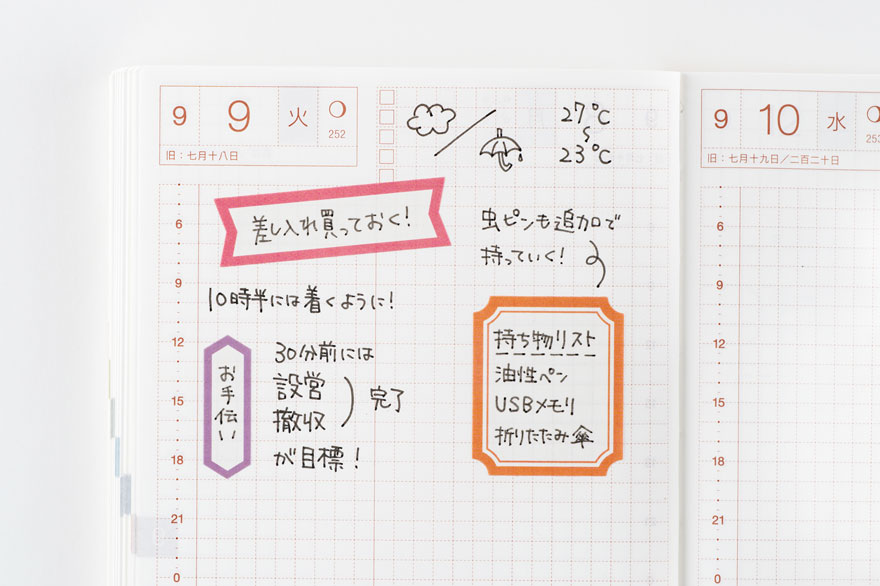 9 9 火 252
旧：七月十八日
27℃
〜
23℃
差し入れ買っておく！
虫ピンも追加で
持っていく！
10時半には着くように！
お手伝い
30分前には
設営
撤収
完了
が目標！
持ち物リスト
油性ペン
USBメモリ
折りたたみ傘
6
9
12
15
18
21
0
9 10 水 253
旧：七月十九日／二百二十日
6
9
12
15
18
21
0